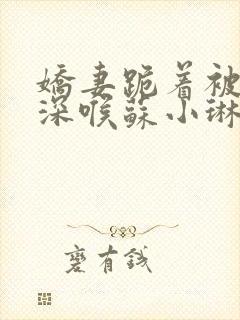 嬌妻跪着被
深喉蘇小琳
麼有錢